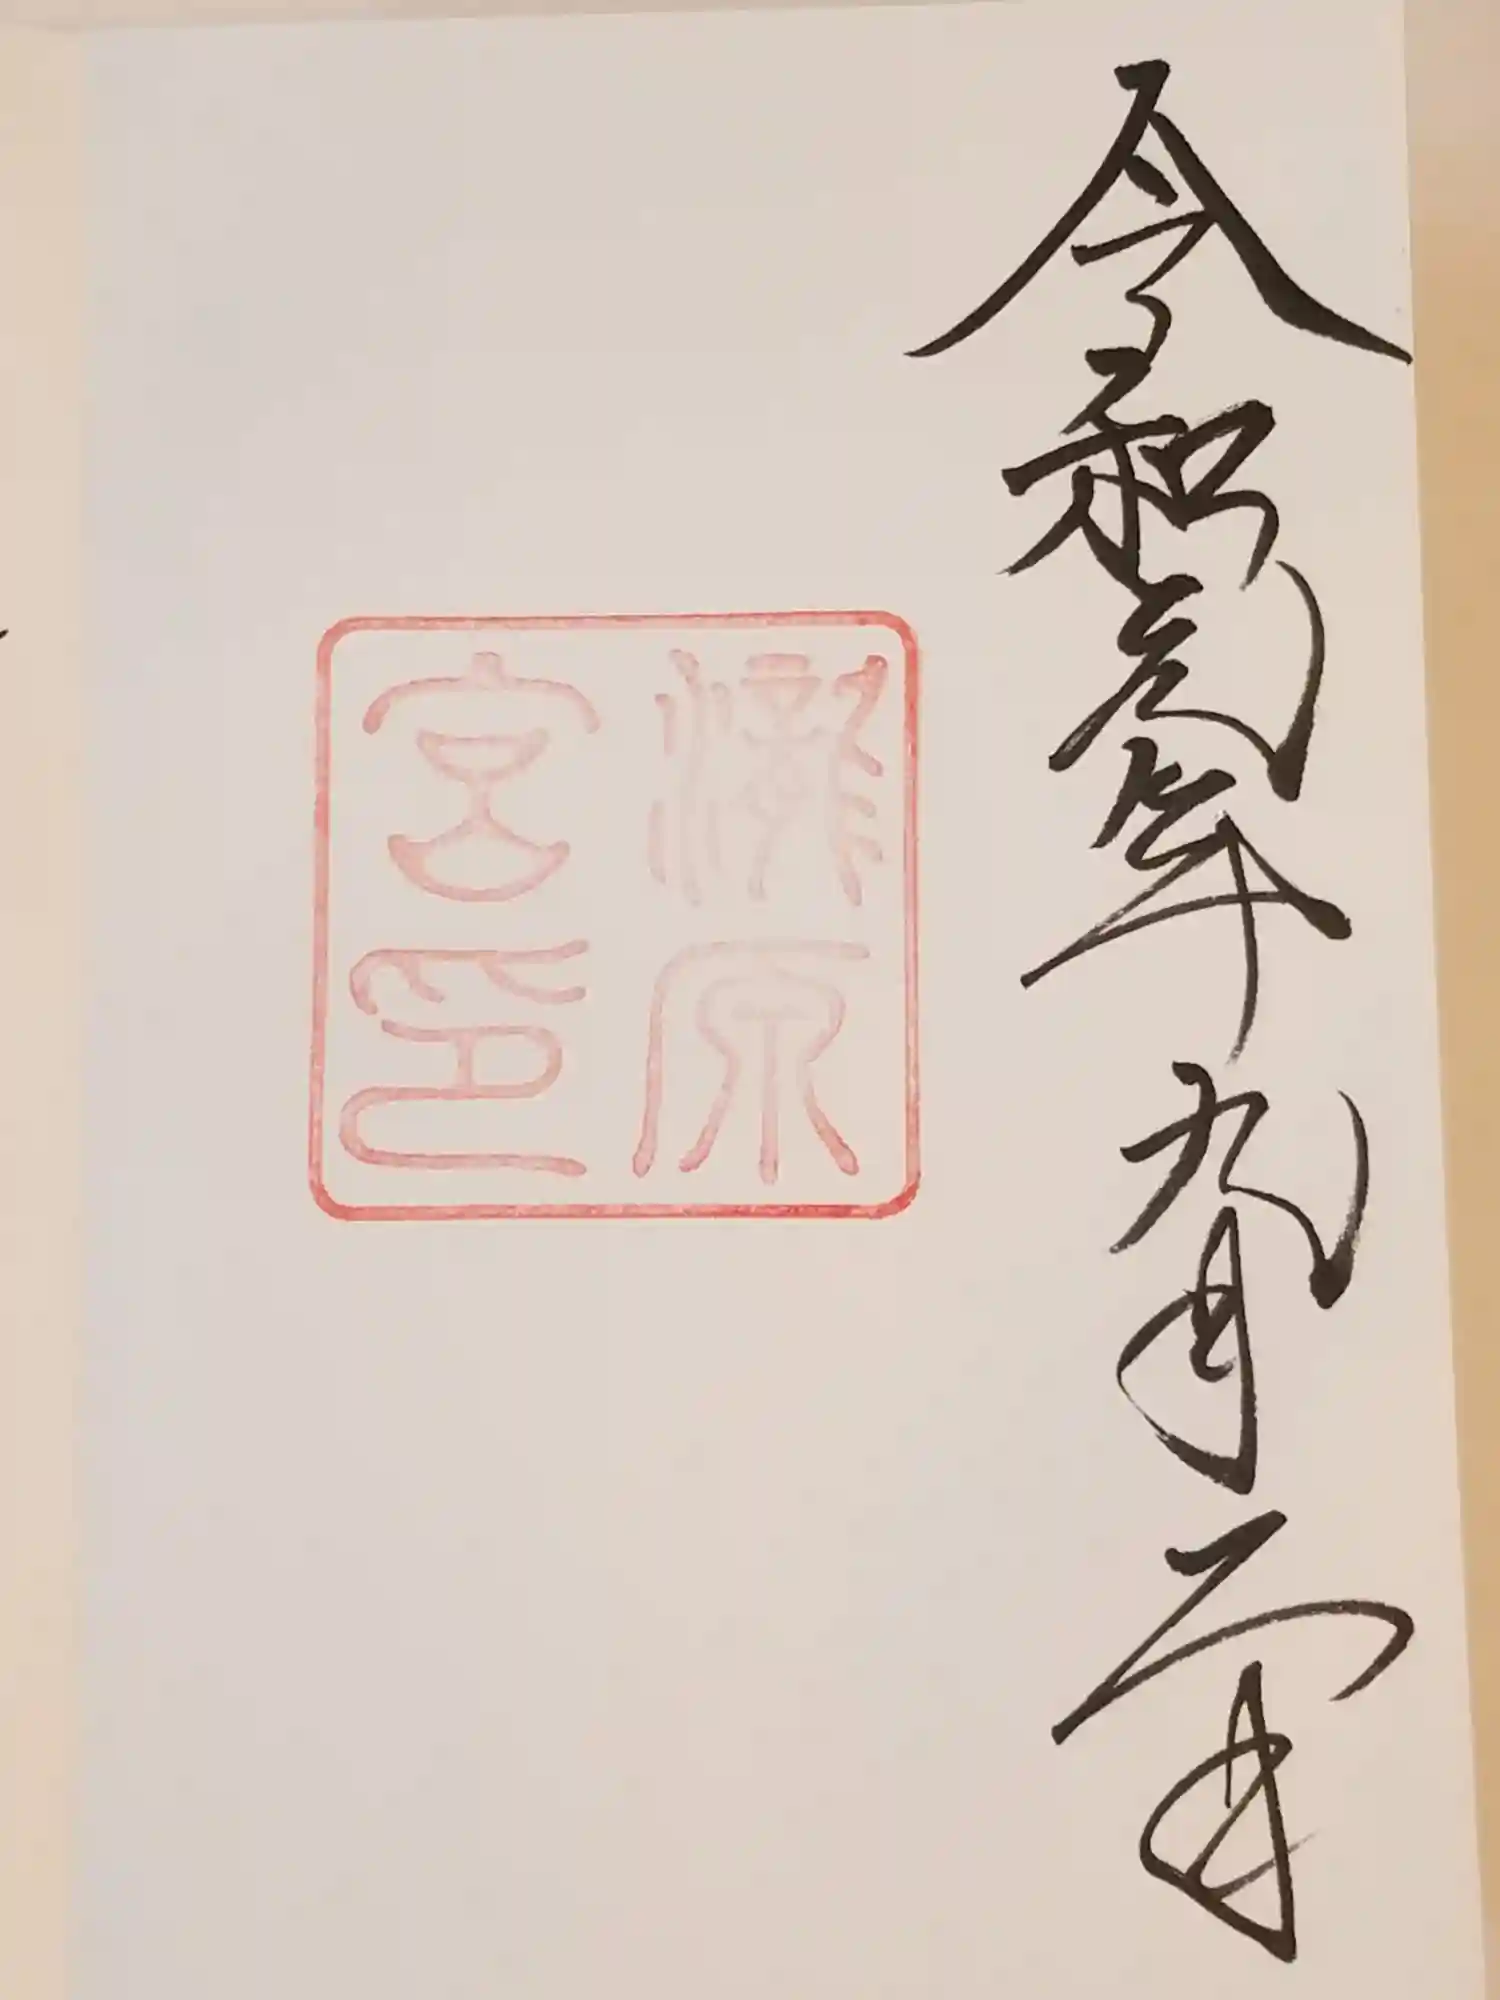 令和元年九月一日
瀧原
宮印